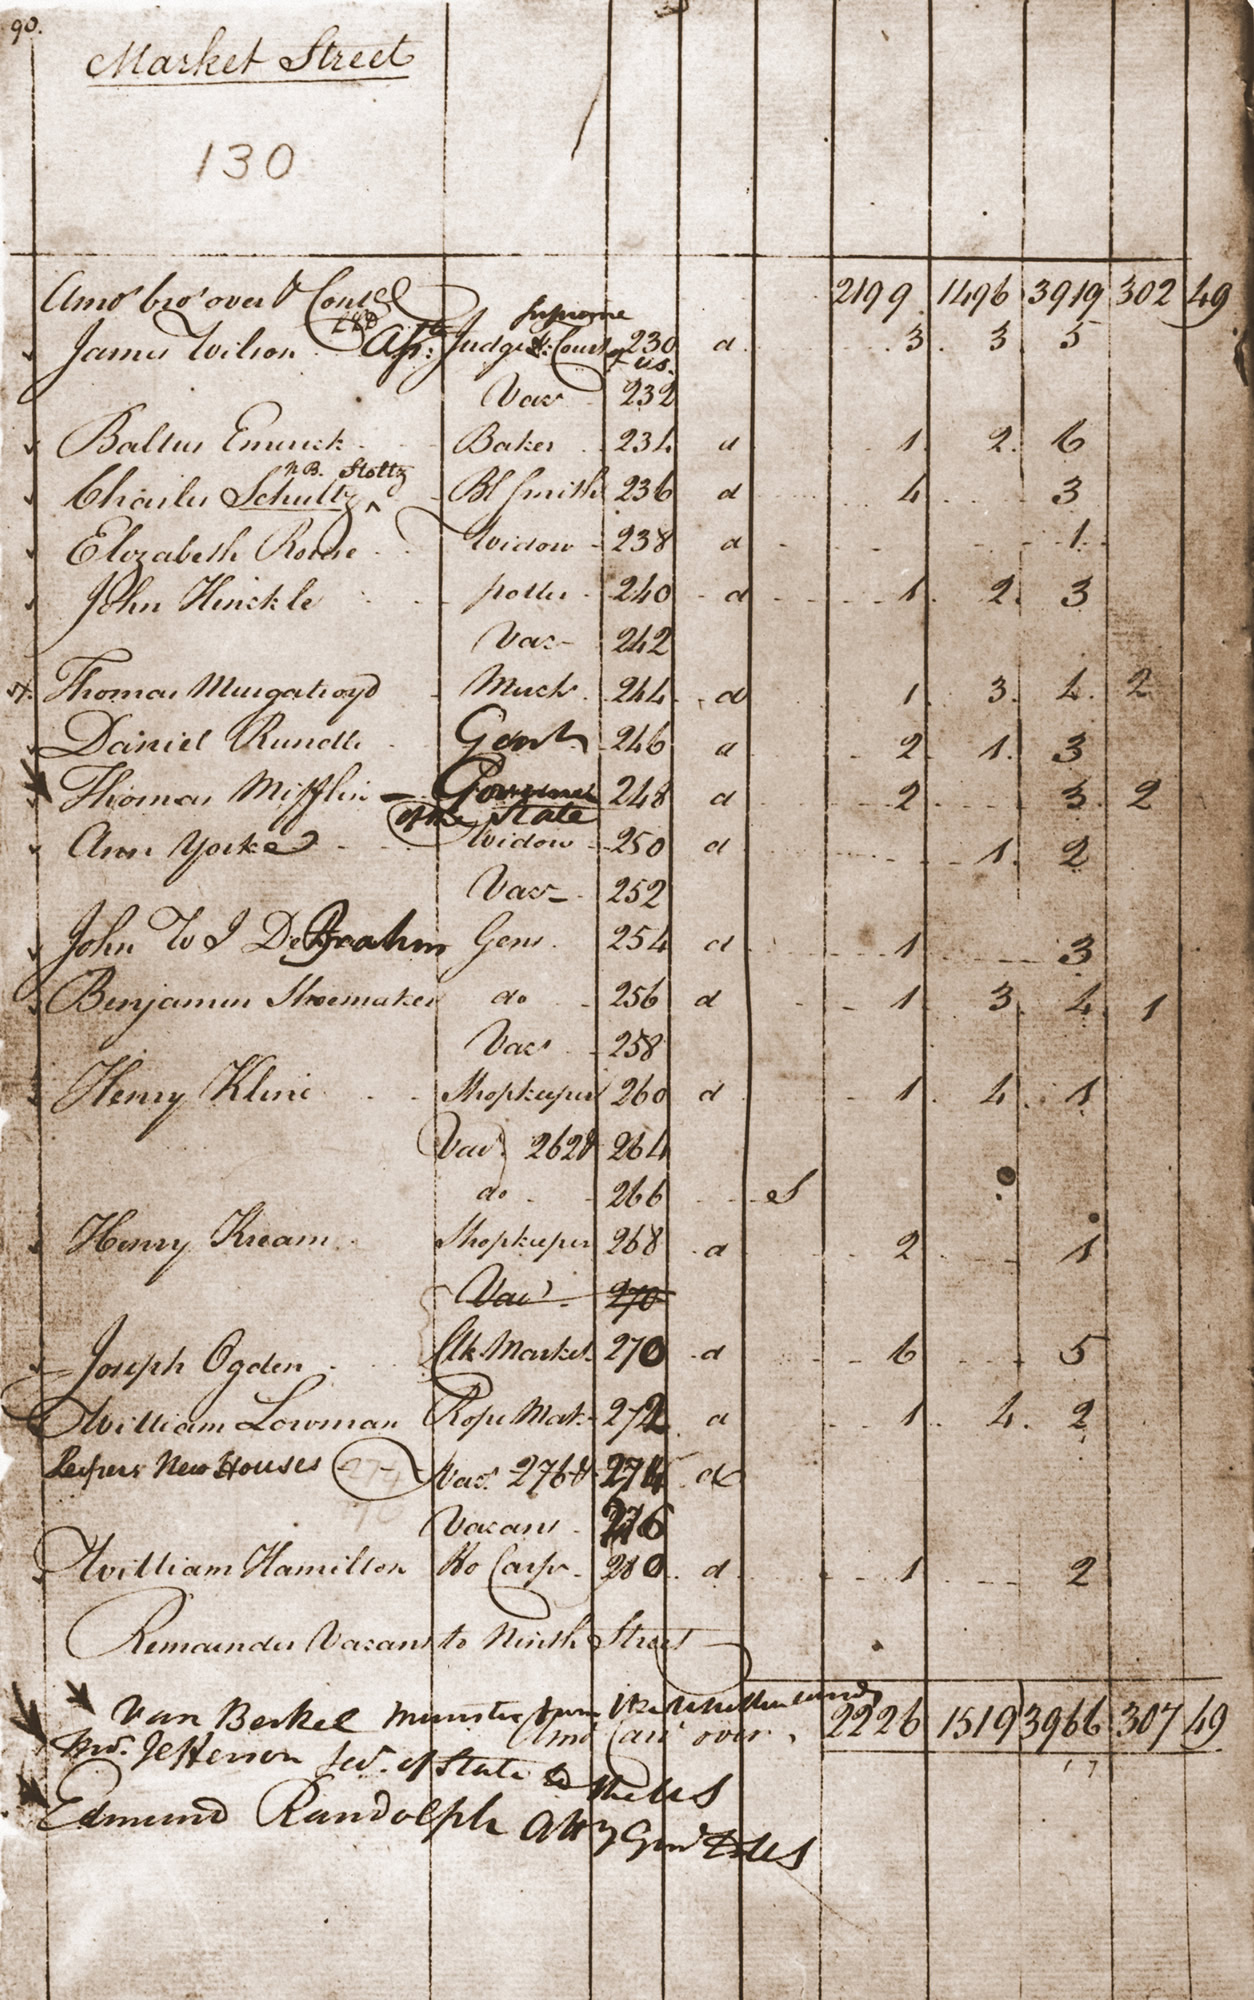 90.
Market Street
130
Amo.t bro.t over & Cont.d 2199 1496 3919 302 49
Supreme
James Wilson Ass: Judge Court 230 d 3 3 5
of US.
Vac.t 232
Baltus Emrick Baker 234 d 1 2 6
NB. Stoltz
Charles Schultz Bl Smith 236 d 4 3
Elizabeth Rowe Widow 238 d 1
John Hinckle potter 240 d 1 2 3
Vac 242
Thomas Murgatroyd Mercht 244 d 1 3 4 2
Daniel Rundle Gent 246 d 2 1 3
Thomas Mifflin Governer 248 d 2 3 2
of the State
Ann Yorke Widow 250 d 1 2
Vac 252
John W I De Brahm Gen. 254 d 1 3
Benjamin Shoemaker do 256 d 1 3 4 1
Vac.t 258
Henry Kline Shopkeeper 260 d 1 4 1
Vac.t 262 & 264
do 266 s
Henry Kream Shopkeeper 268 d 2 1
Vac.t 270
Joseph Ogden Clk Market 270 d 6 5
William Lowman Rope Mak. 272 d 1 4 2
New Houses Vac.t 276 & 274 d
Vacant 276
William Hamilton Ho Carp. 280 d 1 2
Remainder Vacant to Ninth Street
Van Berkel Minister from the Netherlands
Amo.t Car.d over 2226 1519 3966 307 49
17
Mr. Jefferson Sec. of State to the US
Edmund Randolph Att.y Gen.l US